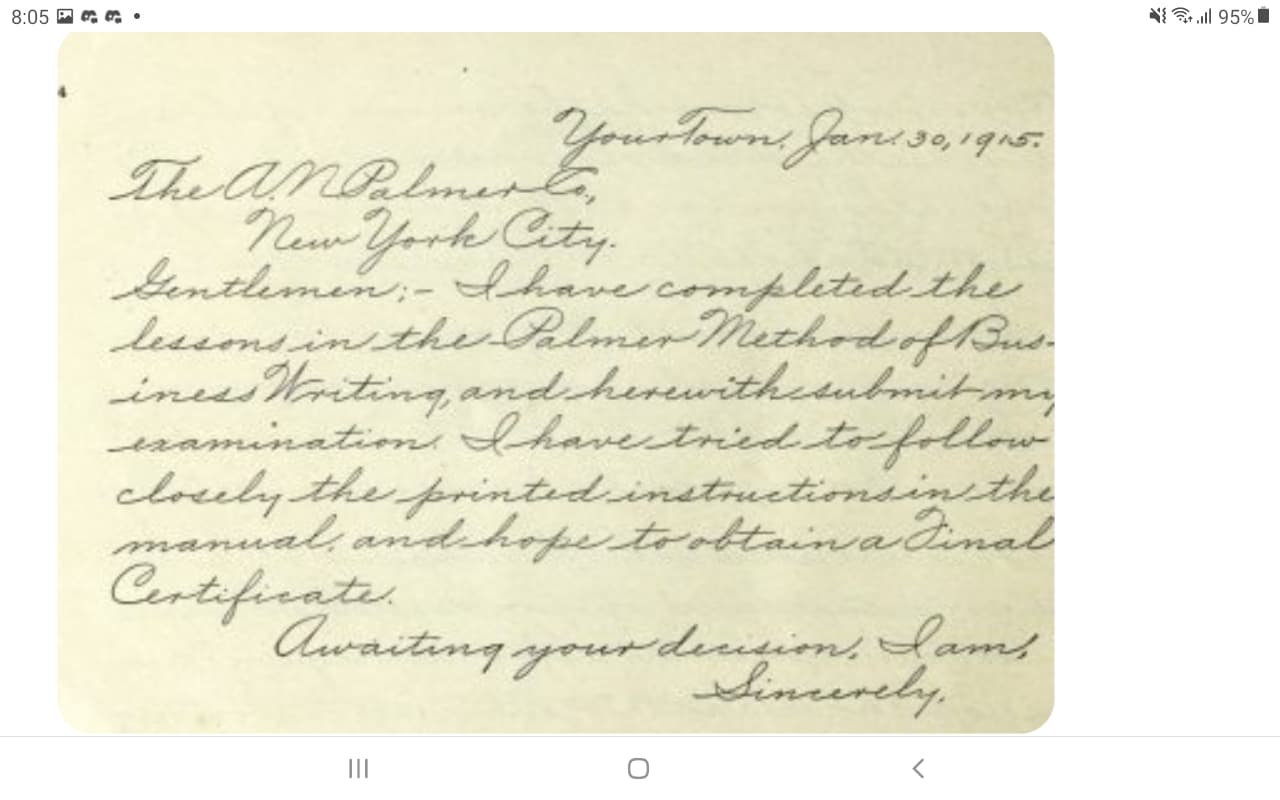 8:05 95%
Your Town, Jan. 30, 1915.
The A. N. Palmer Co.,
New York City.
Gentlemen:- I have completed the
lessons in the Palmer Method of Bus-
iness Writing, and herewith submit my
examination. I have tried to follow
closely the printed instructions in the
manual, and hope to obtain a Final
Certificate.
Awaiting your decision, I am,
Sincerely,